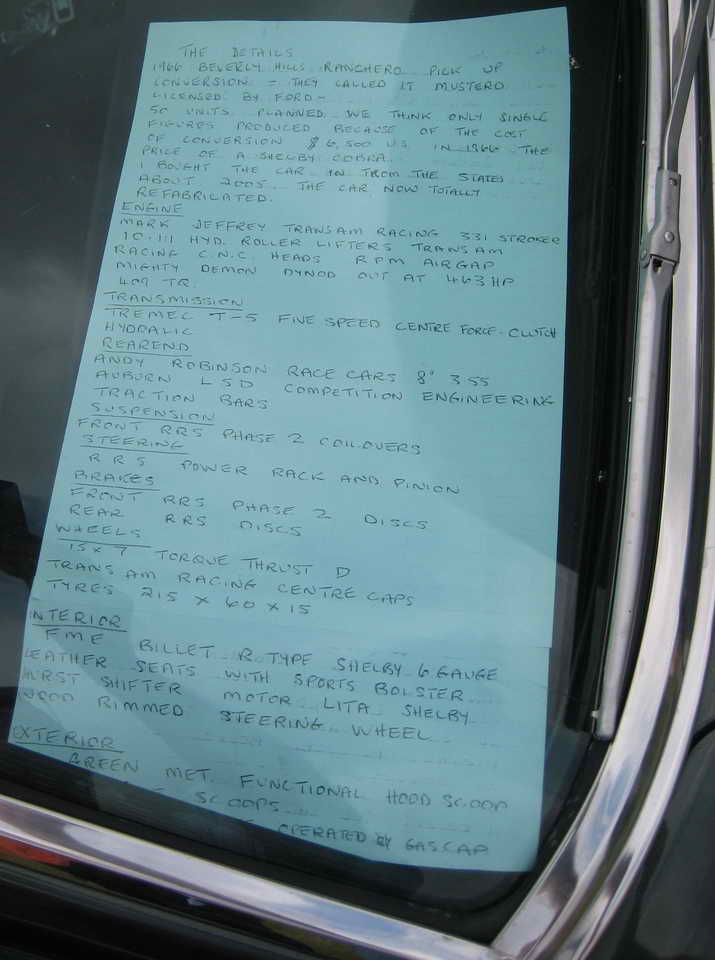 THE DETAILS
1966 BEVERLY HILLS RANCHERO PICK UP
CONVERSION = THEY CALLED IT MUSTERO
LICENSED BY FORD -
50 UNITS PLANNED WE THINK ONLY SINGLE
FIGURES PRODUCED BECAUSE OF THE COST
OF CONVERSION $6,500 U.S. IN 1966 THE
PRICE OF A SHELBY COBRA.
I BOUGHT THE CAR IN FROM THE STATES
ABOUT 2005 THE CAR NOW TOTALLY
REFABRICATED.
ENGINE
MARK JEFFREY TRANSAM RACING 331 STROKER
10.1:1 HYD. ROLLER LIFTERS TRANSAM
RACING C.N.C. HEADS RPM AIRGAP
MIGHTY DEMON DYNOD OUT AT 463 HP
407 TR.
TRANSMISSION
TREMEC T-5 FIVE SPEED CENTRE FORCE-CLUTCH
HYDRALIC
REAREND
ANDY ROBINSON RACE CARS 8" 3.55
AUBURN LSD COMPETITION ENGINEERING
TRACTION BARS
SUSPENSION
FRONT RRS PHASE 2 COILOVERS
STEERING
RRS POWER RACK AND PINION
BRAKES
FRONT RRS PHASE 2 DISCS
REAR RRS DISCS
WHEELS
15 x 7 TORQUE THRUST D
TRANS AM RACING CENTRE CAPS
TYRES 215 x 60 x 15
INTERIOR
FME BILLET R TYPE SHELBY 6 GAUGE
LEATHER SEATS WITH SPORTS BOLSTER
HURST SHIFTER MOTOR LITA SHELBY
WOOD RIMMED STEERING WHEEL
EXTERIOR
GREEN MET. FUNCTIONAL HOOD SCOOP
SCOOPS
OPERATED BY GASCAP